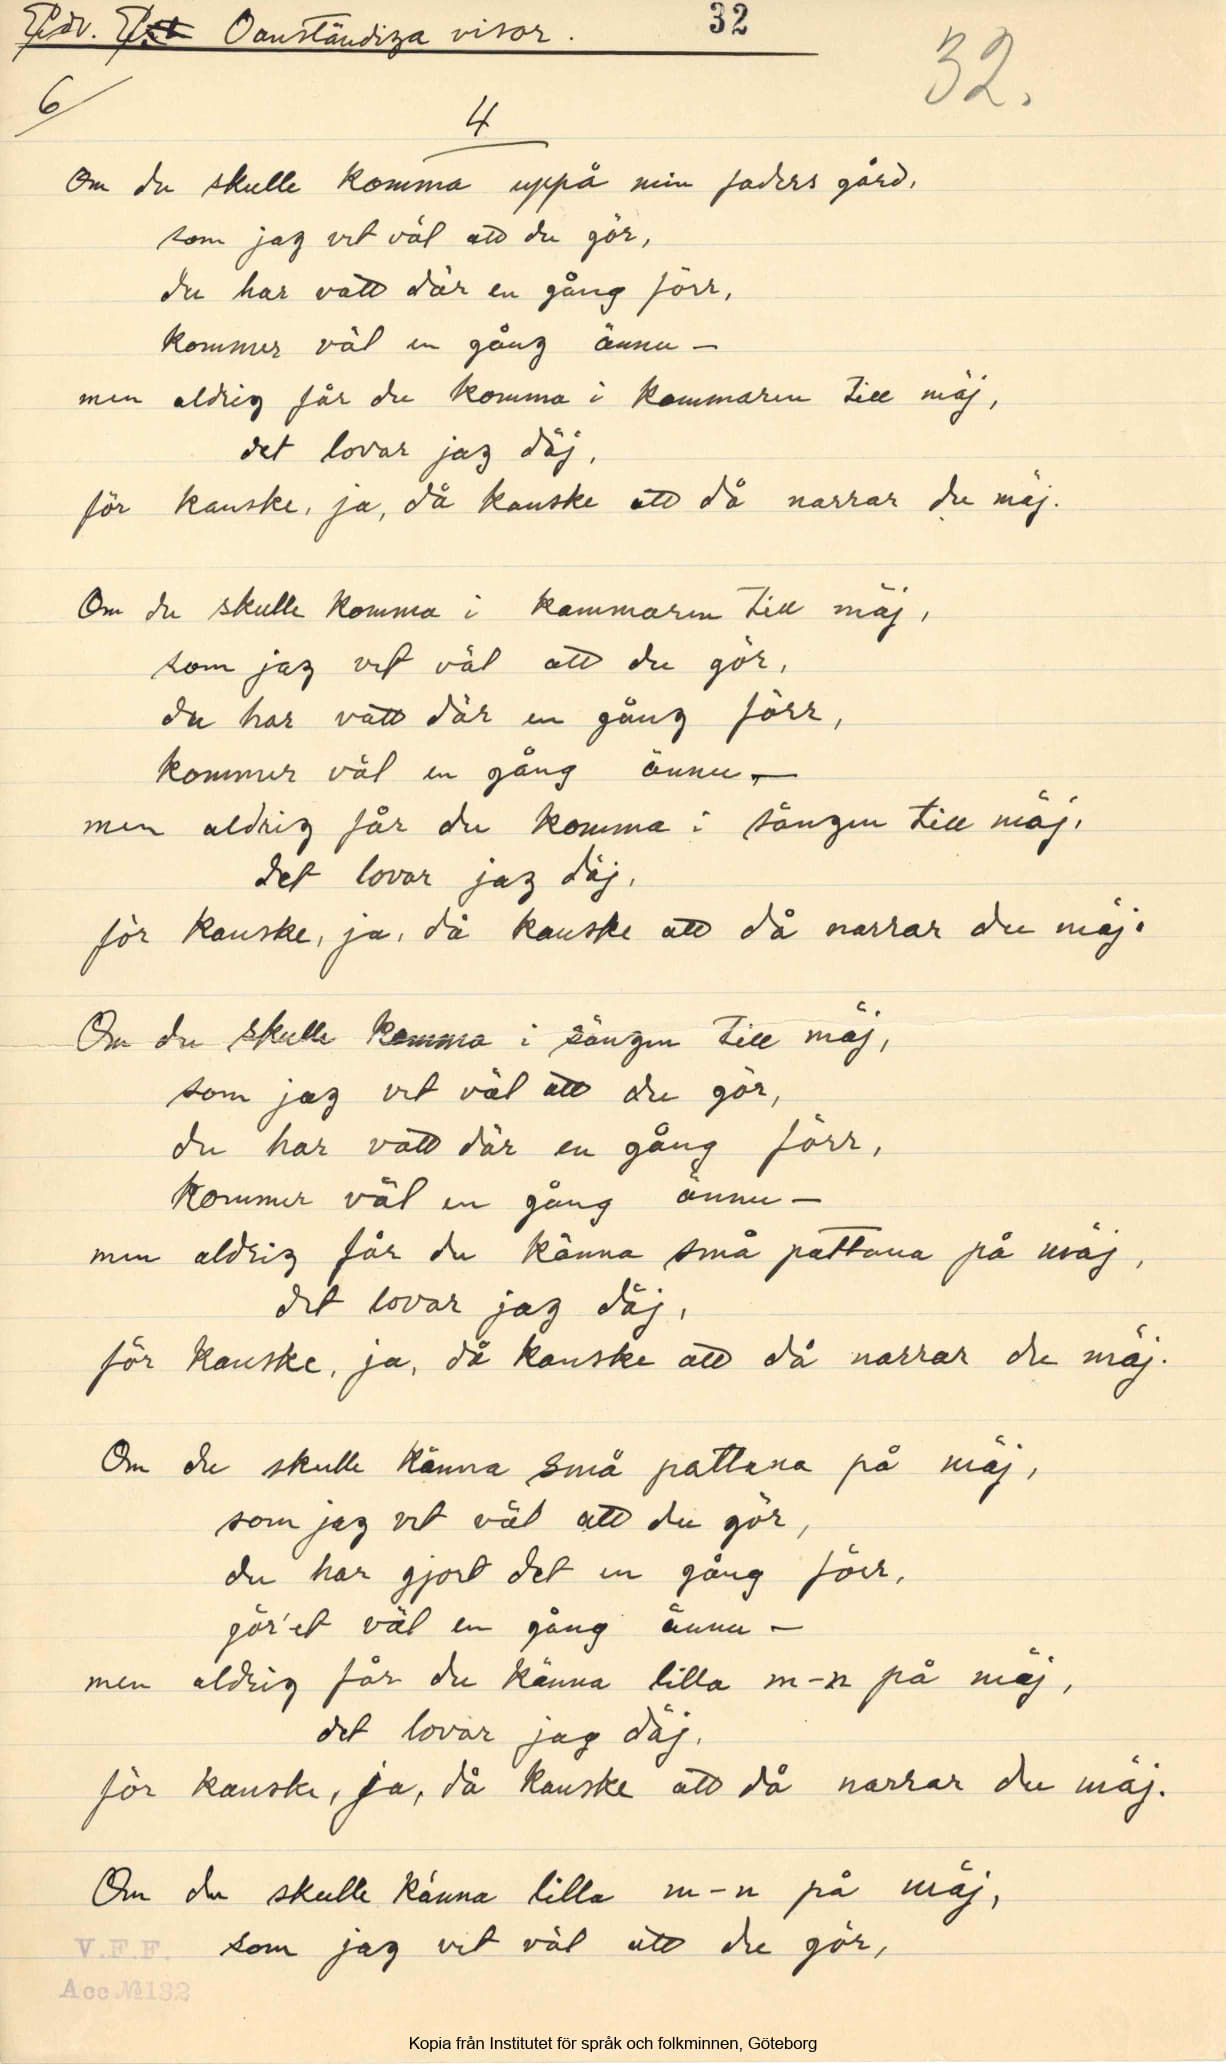 Edv. Oanständiga visor.
32
32.
6/
4
Om du skulle komma uppå min faders gård,
som jag vet väl att du gör,
du har vatt där en gång förr,
kommer väl en gång ännu –
men aldrig får du komma i kammaren till mäj,
det lovar jag däj,
för kanske, ja, då kanske att då narrar du mäj.
Om du skulle komma i kammaren till mäj,
som jag vet väl att du gör,
du har vatt där en gång förr,
kommer väl en gång ännu –
men aldrig får du komma i sängen till mäj,
det lovar jag däj,
för kanske, ja, då kanske att då narrar du mäj.
Om du skulle komma i sängen till mäj,
som jag vet väl att du gör,
du har vatt där en gång förr,
kommer väl en gång ännu –
men aldrig får du känna små pattana på mäj,
det lovar jag däj,
för kanske, ja, då kanske att då narrar du mäj.
Om du skulle känna små pattana på mäj,
som jag vet väl att du gör,
du har gjort det en gång förr,
gör'et väl en gång ännu –
men aldrig får du känna lilla m-n på mäj,
det lovar jag däj,
för kanske, ja, då kanske att då narrar du mäj.
Om du skulle känna lilla m-n på mäj,
som jag vet väl att du gör,
V.F.F.
Acc №132
Kopia från Institutet för språk och folkminnen, Göteborg